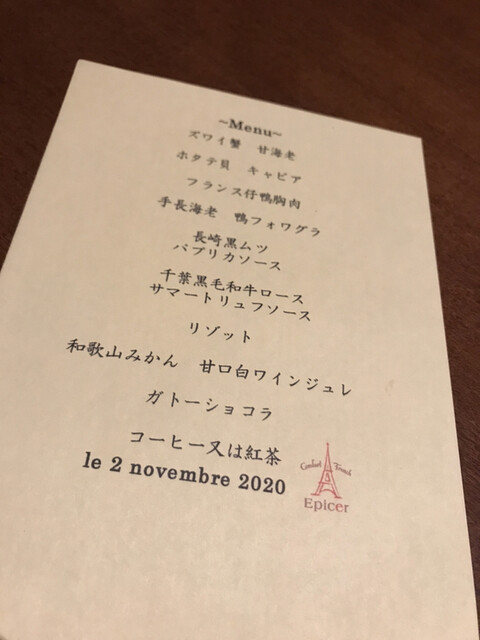 ~Menu~
ズワイ蟹　甘海老
ホタテ貝　キャビア
フランス仔鴨胸肉
手長海老　鴨フォワグラ
長崎黒ムツ
パプリカソース
千葉黒毛和牛ロース
サマートリュフソース
リゾット
和歌山みかん　甘口白ワインジュレ
ガトーショコラ
コーヒー又は紅茶
le 2 novembre 2020
Comfort French
Epicer